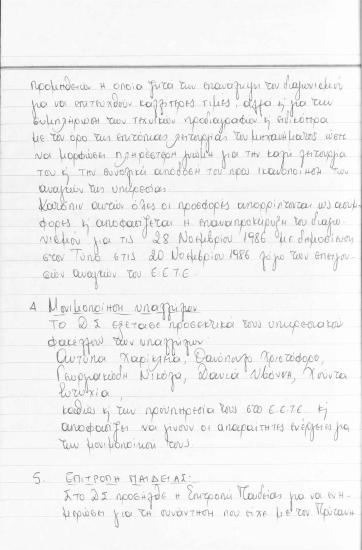 προμηθειών η οποία ζητά την επανάληψη του διαγωνισμού
για να επιτευχθούν καλλίτερες τιμές, αλλά ή για την
συμπλήρωση των τεχνικών προδιαγραφών ή ειδικότερα
με τον όρο της επιτόπιας λειτουργίας του μηχανήματος ώστε
να μορφώσει πληρέστερη γνώμη για την καλή λειτουργία
του ή την συνολική απόδοση του προς ικανοποίηση των
αναγκών της υπηρεσίας.
Κατόπιν αυτών όλες οι προσφορές απορρίπτονται ως ασύμ-
φορες ή αποφασίζεται η επαναπροκήρυξη του διαγω-
νισμού για τις 28 Νοεμβρίου 1986 με δημοσίευση
στον Τύπο στις 20 Νοεμβρίου 1986 λόγω των επειγου-
σών αναγκών του Ε.Ε.Τ.Ε.
4. Μονιμοποίηση υπαλλήλων
Το Δ.Σ. εξέτασε προσεκτικά τους υπηρεσιακούς
φακέλλους των υπαλλήλων
Αντύπα Χαρίκλεια, Φανόπουλο Χριστόφορο,
Γεωργιακώδη Νικόλα, Χούντα
Ευτυχία,
καθώς ή την προϋπηρεσία τους στο Ε.Ε.Τ.Ε. ή
αποφασίζει να γίνουν οι απαραίτητες ενέργειες για
την μονιμοποίηση τους.
5. ΕΠΙΤΡΟΠΗ ΠΑΙΔΕΙΑΣ:
Στο Δ.Σ. προσήλθε η Επιτροπή Παιδείας για να ενη-
μερώσει για τη συνάντηση που είχε με τον Πρύτανη